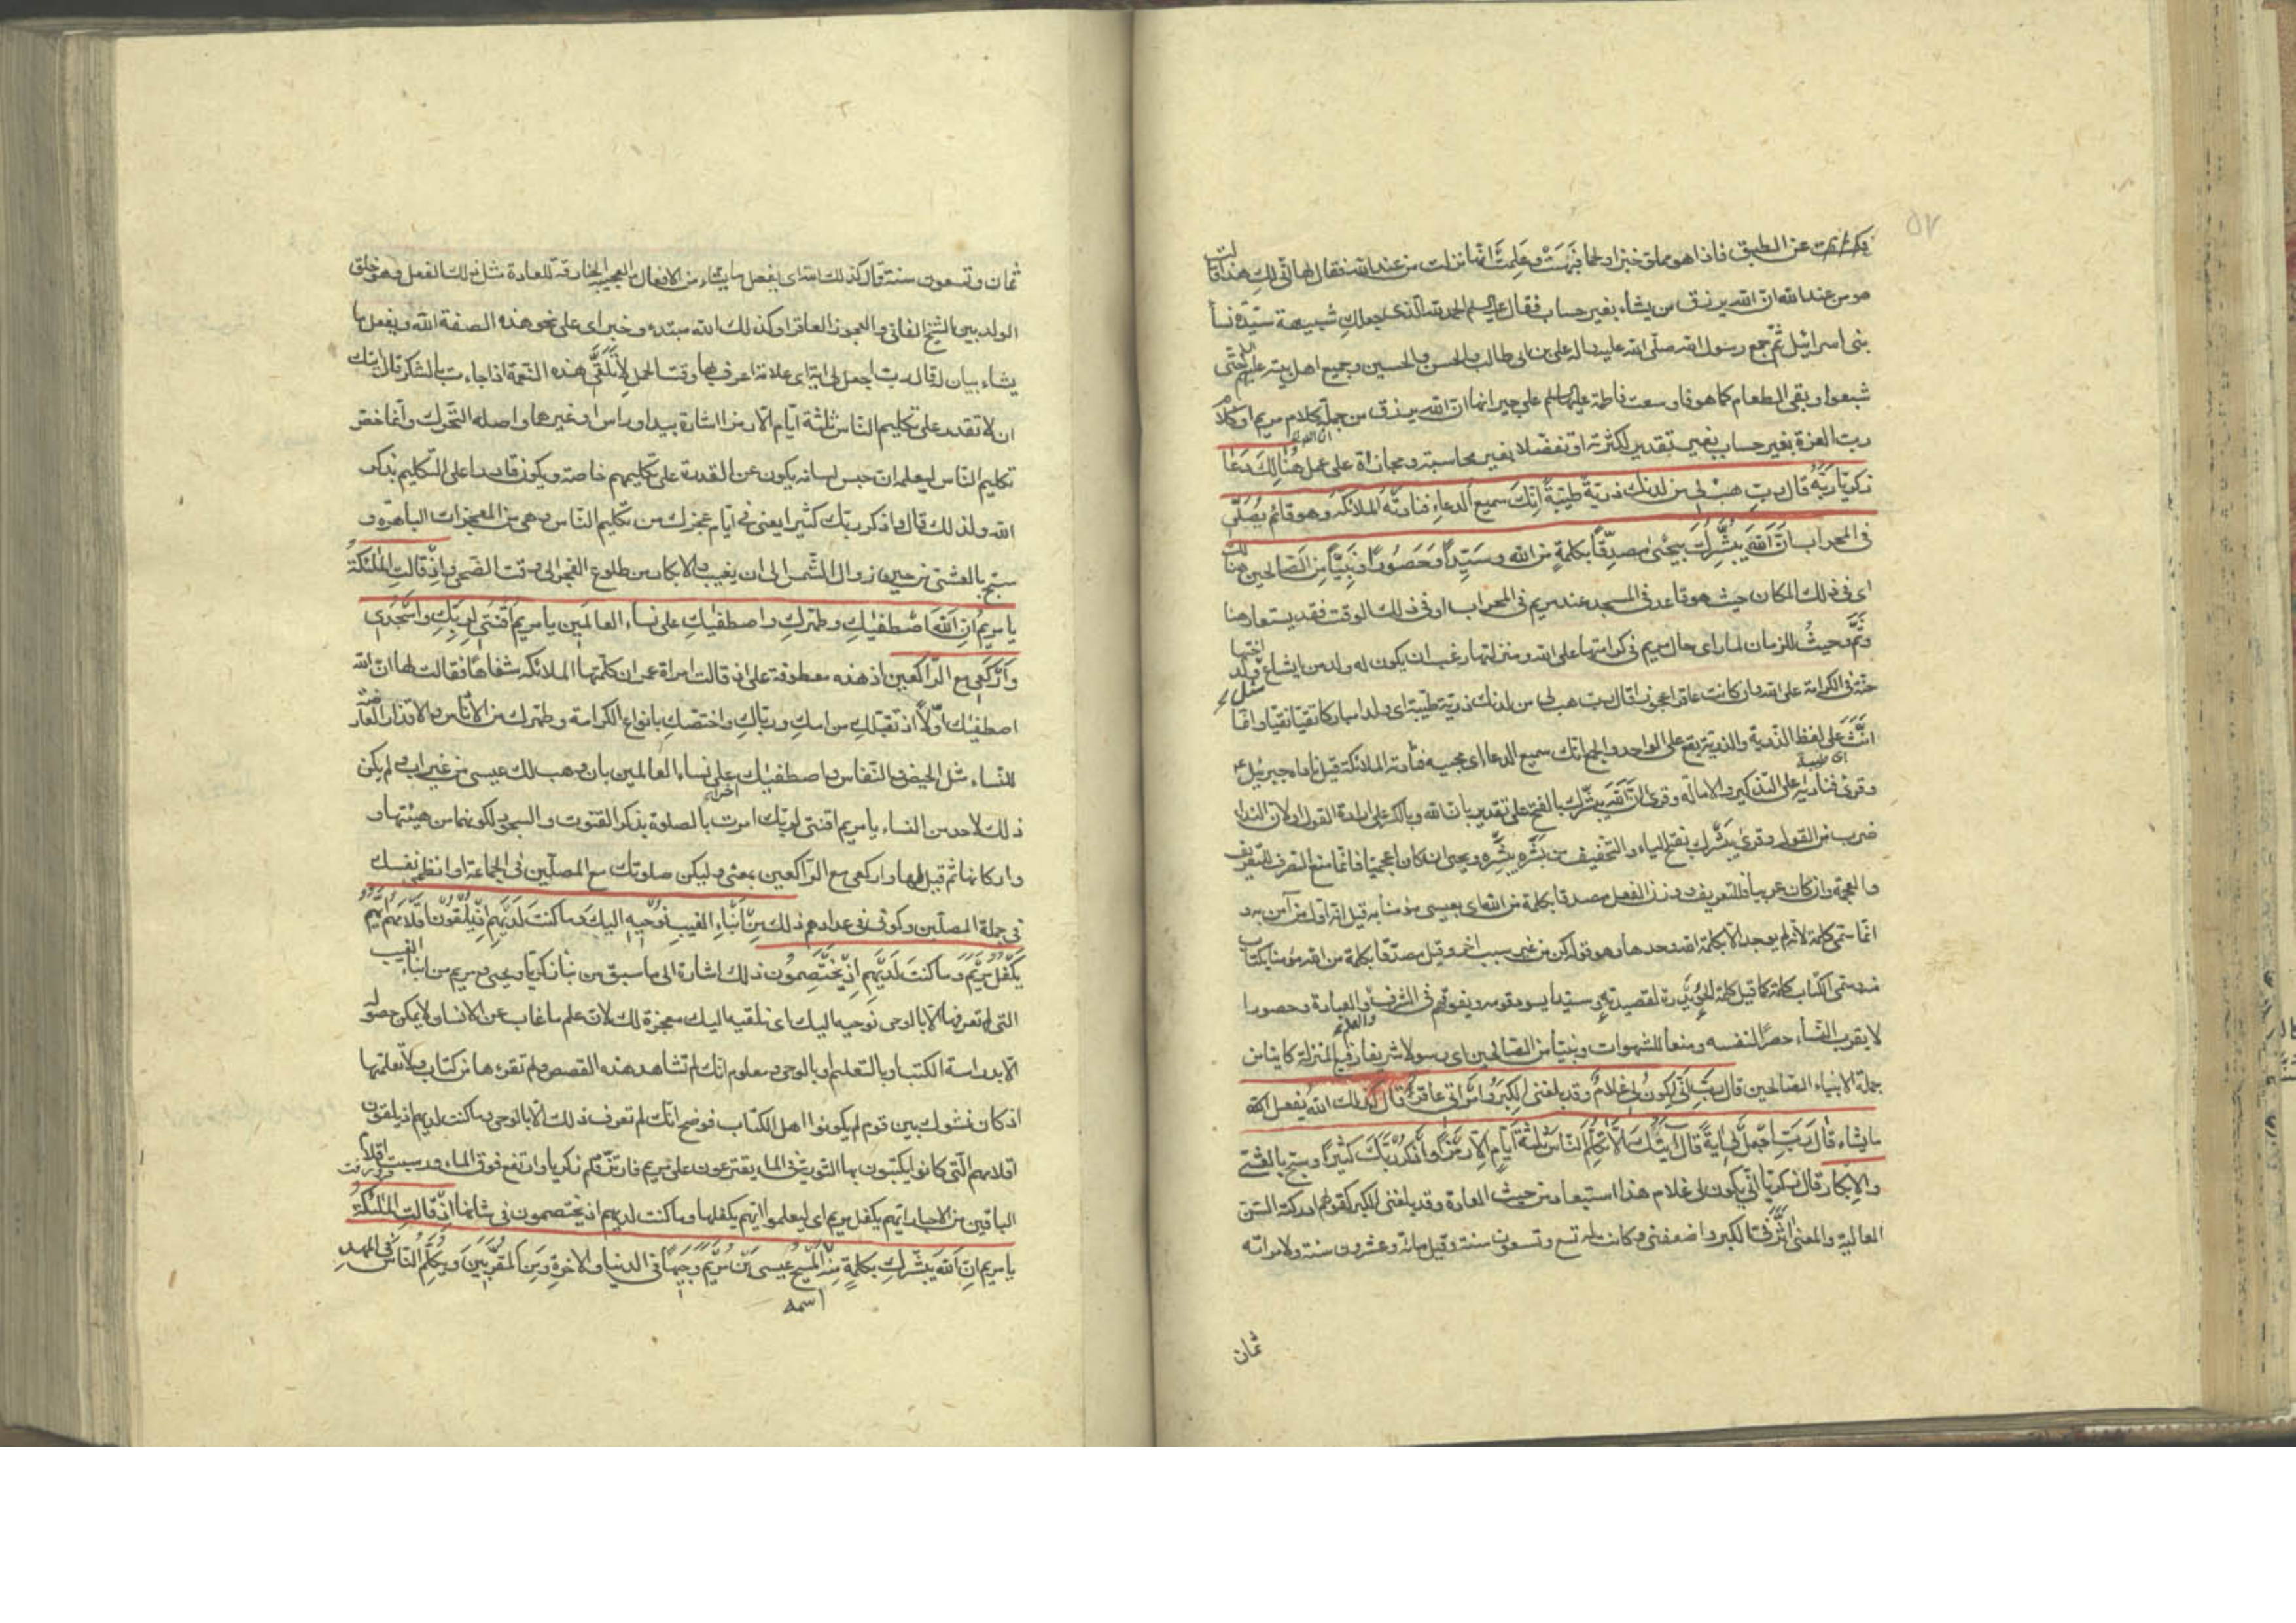 فكشفت عن الطبق فاذا هو مملو خبزا ولحما فبهتت وعلمت انها نزلت من عند الله فقال لها انى لك هذا قالت
هو من عند الله ان الله يرزق من يشاء بغير حساب فقال عليه السلم الحمد لله الذى جعلك شبيهة سيدة نسأ
بنى اسرائيل ثم جمع رسول الله صلى الله عليه واله على بن ابى طالب والحسن والحسين وجميع اهل بيته عليه حتى
شبعوا وبقى الطعام كما هو فاوسعت فاطمة عليها السلم على جيرانها ان الله يرزق من جملة كلام مريم او كلام
رب العزة بغير حساب بغير تقدير لكثرته او تفضلا بغير محاسبة ومجازاة على عمل هُنالِكَ دَعا
زكريّا رَبَّهُ قال ربِ هب لى من لدنك ذريّةً طيّبةً اِنّكَ سميع الدعاءِ فنادَتْهُ الملائكة وهو قائم يُصَلّى
فى المحراب اَنَّ اللهَ يبشّركَ بيحْيىٰ مصدّقًا بكلمةٍ من الله وسَيّدًا وَحَصُورًا ونَبِيًّا مِنَ الصّالحين هنالك
اى فى ذلك المكان حيث هو قاعد فى المسجد عند مريم فى المحراب او فى ذلك الوقت فقد يستعار هنا
وثَمَّ وحيثُ للزمان لما راى حال مريم فى كرامتها على الله ومنزلتها رغب ان يكون له ولد من ايشاع اختها مثل ولد
حنّة فى الكرامة على الله وان كانت عاقرا عجوزا قال رب هب لى من لدنك ذرية طيبة اى ولدا مباركا تقيا نقيا وانما
انّثَ على لفظ الذرية والذرية يقع على الواحد والجمع انك سميع الدعا اى مجيبه فنادته الملائكة قيل ناداه جبرئيل ع
وقرئ فناديه على التذكير والاماله وقرئ ان الله يبشرك بالفتح على تقدير بان الله وبالكسر على ارادة القول او لان الندا
ضرب من القول وقرئ يَبْشُرك بفتح الياء والتخفيف من بَشَرَه يبشُره ويحيى ان كان اعجميا فانما منع الصرف للتعريف
والعجمة وان كان عربيا فللتعريف ووزن الفعل مصدقا بكلمة من الله اى بعيسى مؤمنا به قيل انه اول من آمن به و
انما سمى كلمة لانه لم يوجد الا بكلمة الله وحدها وهو قوله كن من غير سبب اخر وقيل مصدقا بكلمة من الله مؤمنا بكتاب
منه وسمى الكتاب كلمة كما قيل كلمة الحُوَيْدِرة لقصيدته وسيّدا يسود قومه ويفوقهم فى الشرف والعلم والعبادة وحصورا
لا يقرب النساء حصرًا لنفسه ومنعا للشهوات ونبيّا من الصالحين اى رسولا شريفا رفيع المنزلة كاينا من
جملة الانبياء الصالحين قال رَبِّ اَنّى يكونُ لى غلامٌ وقد بلغنى الكِبَرُ وامراتى عاقرٌ قالَ كذلك الله يَفعل
ما يشاء قالَ رَبِّ اجعَلْ لى ايةً قال ايتُكَ اَلّا تُكلّمَ النّاسَ ثلثةَ ايّامٍ اِلّا رَمْزًا وَاذْكُرْ رَبَّكَ كثيرًا وسبّح بالعَشىّ
والاِبكار قال زكريّا انّى يكون لى غلام هذا استبعاد من حيث العادة وقد بلغنى الكبر كقولهم ادركته السن
العالية والمعنى اثّرَ فىّ الكبر واضعفنى وكانت له تسع وتسعون سنة وقيل مائة وعشرون سنة ولامراته
ثمان
ثمان وتسعون سنة قال كذلك الله اى يفعل ما يشاء من الافعال العجيبة الخارقة للعادة مثل ذلك الفعل وهو خلق
الولد بين الشيخ الفانى والعجوز العاقر او كذلك الله مبتدء وخبر اى على نحو هذه الصفة الله ويفعل ما
يشاء بيان له قال رب اجعل لى اية اى علامة اعرف بها وقت الحمل لاتلقّى هذه النعمة اذا جاءت بالشكر قال ايتك
ان لا تقدر على تكليم الناس ثلثة ايام الا رمزا اشارة بيد او راس او غيرهما واصله التحرك وانما خص
تكليم الناس ليعلم ان حبس لسانه يكون عن القدرة على تكليمهم خاصة ويكون قادرا على التكليم بذكر
الله ولذلك قال واذكر ربك كثيرا يعنى فى ايام عجزك من تكليم الناس وهى من المعجزات الباهرة و
سبّح بالعشىّ من حين زوال الشمس الى ان يغيب والابكار من طلوع الفجر الى وقت الضحى واذْ قالتِ المَلئكةُ
يا مريمُ انّ اللهَ اصْطفيٰكِ وطهّركِ واصطفيٰكِ على نساء العالمين يا مريمُ اقْنُتى لِربِّكِ واسْجُدى
واركعى مع الرّاكعين اذ هذه معطوفة على اذ قالت امراة عمران كلّمتها الملائكة شفاها فقالت لها ان الله
اصطفيك اوّلًا اذ تقبّلكِ من امكِ وربّاكِ واختصّكِ بانواع الكرامة وطهّرك من الادناس والاقذار العارضة
للنساء مثل الحيض والنفاس واصطفيك اخرا على نساء العالمين بان وهب لك عيسى من غير اب ولم يكن
ذلك لاحد من النساء يا مريم اقنتى لربك امرت بالصلوة بذكر القنوت والسجود لكونهما من هيئتها و
واركانها ثم قيل لها واركعى مع الراكعين بمعنى وليكن صلوتك مع المصلّين فى الجماعة او انظمى نفسك
فى جملة المصلّين وكونى فى عدادهم ذلِكَ مِنْ اَنْباءِ الغيبِ نُوحيهِ اليكَ وما كنتَ لَدَيْهِمْ اِذْ يُلْقُونَ اَقْلامَهُمْ اَيُّهُمْ
يَكْفُلُ مَرْيَمَ وما كنتَ لَدَيْهِمْ اِذْ يَخْتَصِمُون ذلك اشارة الى ما سبق من نبأ زكريا ويحيى ومريم من انباء الغيب
التى لم تعرفها الا بالوحى نوحيه اليك اى نلقيه اليك معجزة لك لان علم ما غاب عن الانسان لا يمكن حصوله
الا بدراسة الكتب او بالتعلم او بالوحى ومعلوم انك لم تشاهد هذه القصص ولم تقرءها من كتاب ولا تعلمتها
اذ كان نشوك بين قوم لم يكونوا اهل الكتاب فوضح انك لم تعرف ذلك الا بالوحى وما كنت لديهم اذ يلقون
اقلامهم التى كانوا يكتبون بها التورية فى الماء يقترعون على مريم فارتزّ قلم زكريا وارتفع فوق الماء ورسبت اقلام
الباقين من الاحبار ايهم يكفل مريم اى ليعلموا ايهم يكفلها وما كنت لديهم اذ يختصمون فى شانها اذْ قالتِ المَلئكةُ
يا مريم اِنّ اللهَ يبشّركِ بكلمةٍ مِنْهُ اسمه المَسيحُ عيسى بْنُ مَرْيَمَ وَجيهًا فى الدنيا والاخرةِ ومِنَ المُقَرَّبينَ ويُكلّمُ النّاسَ فى المهدِ